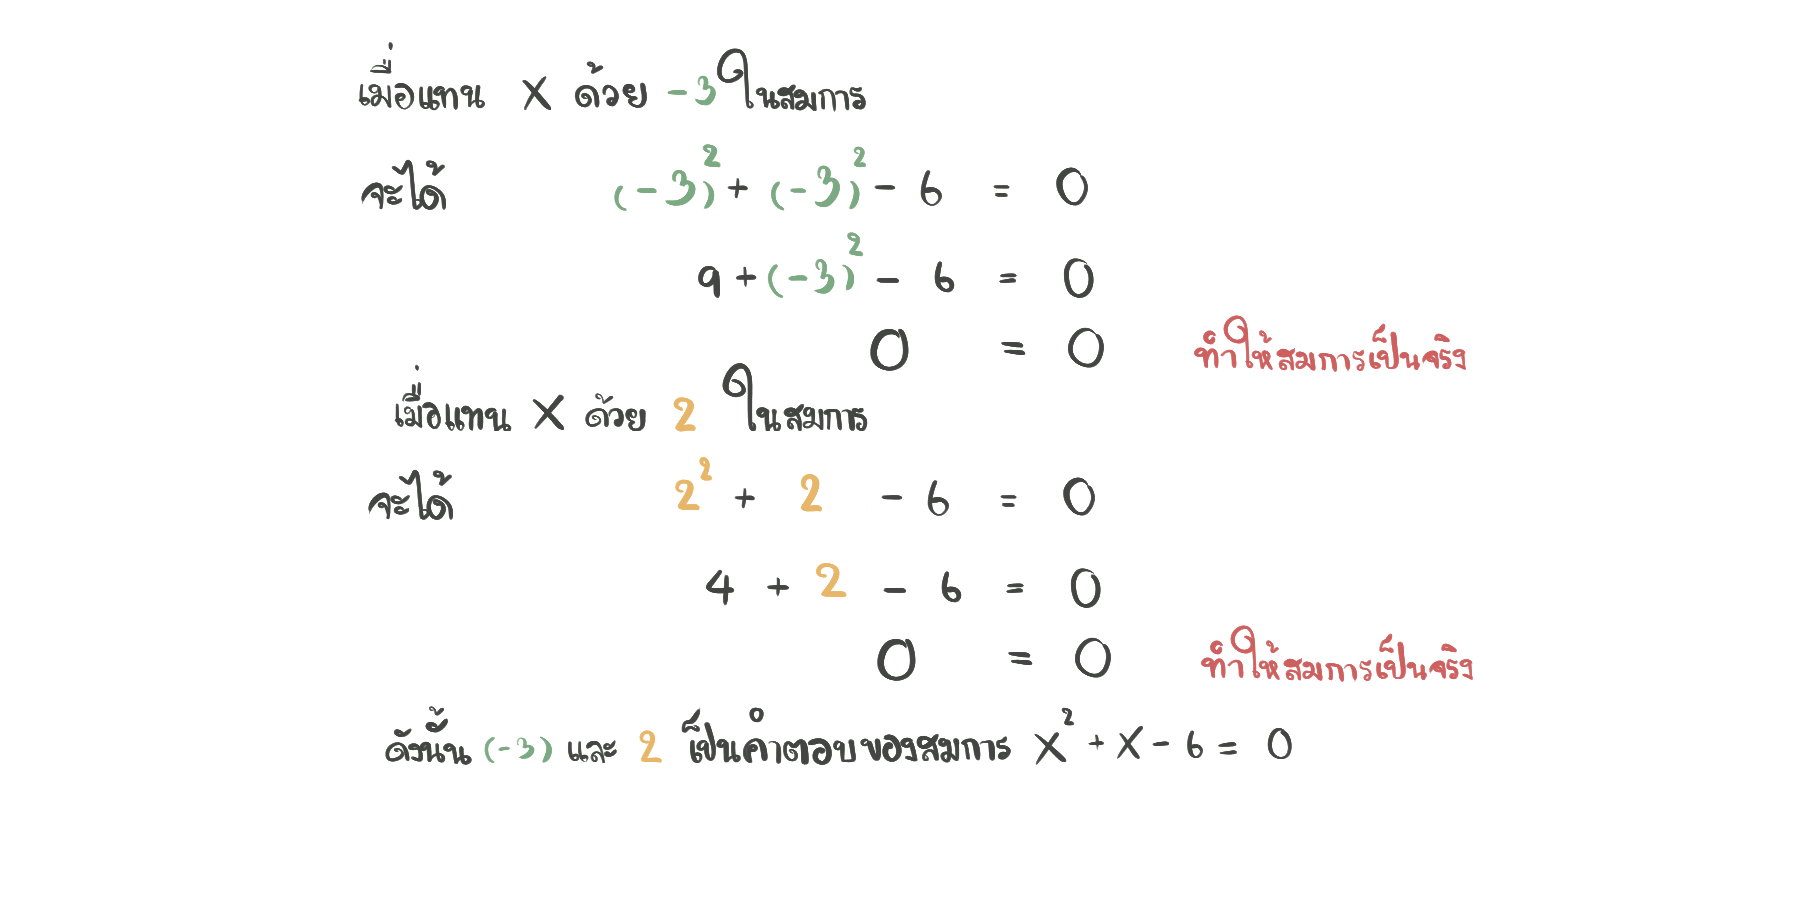 เมื่อแทน X ด้วย -3 ในสมการ
จะได้ (-3)² + (-3)² - 6 = 0
9 + (-3)² - 6 = 0
0 = 0 ทำให้สมการเป็นจริง
เมื่อแทน X ด้วย 2 ในสมการ
จะได้ 2² + 2 - 6 = 0
4 + 2 - 6 = 0
0 = 0 ทำให้สมการเป็นจริง
ดังนั้น (-3) และ 2 เป็นคำตอบของสมการ X² + X - 6 = 0